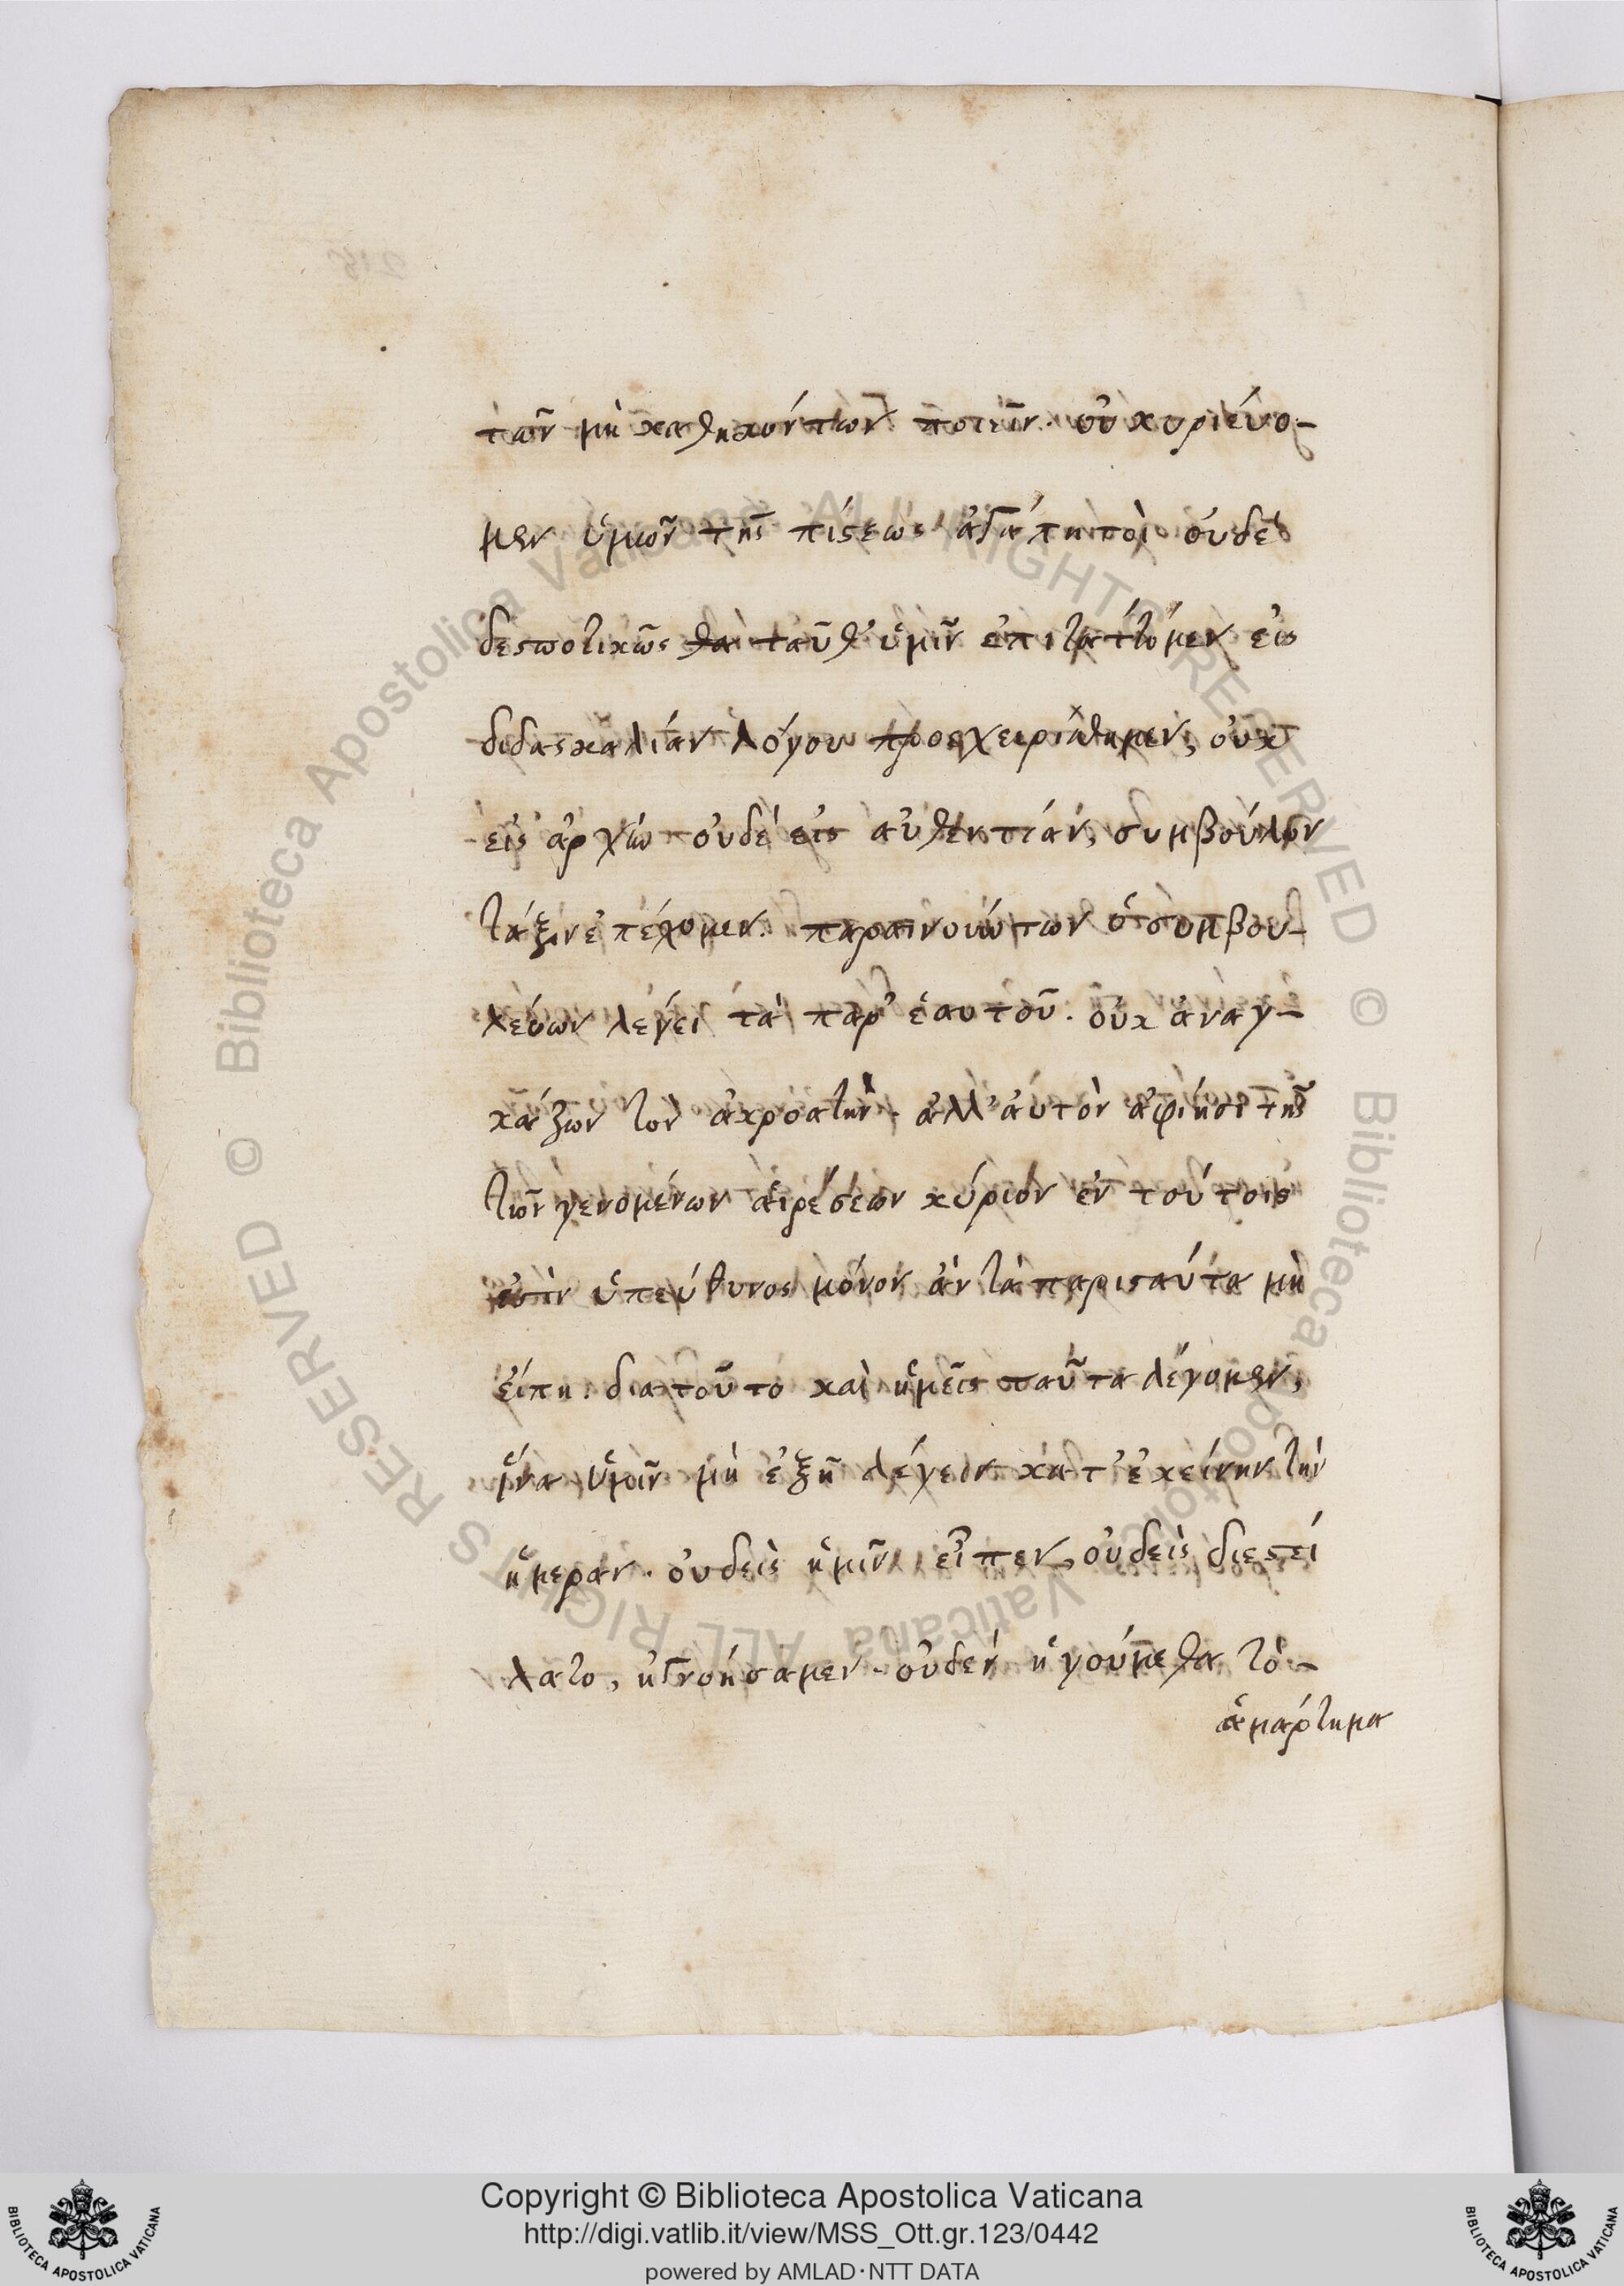 τῶν μὴ καθηκόντων ποιεῖν. οὐ κυριεύο-
μεν ὑμῶν τῆς πίστεως ἀγάπητοὶ οὐδὲ
δεσποτικῶς θαὶ ταῦθ' ὑμῖν ἐπιτάττομεν εἰς
διδασκαλίαν λόγου οὐκ
εἰς ἀρχὴν οὐδὲ εἰς αὐθεντίαν, συμβούλων
τάξιν ἐπέχομεν. παραινούντων ὁ συμβου-
λεύων λέγει τὰ παρ' ἑαυτοῦ. οὐκ ἀναγ-
κάζων τὸν ἀκροατὴν. ἀλλ' αὐτὸν ἀφίησι τῆς
τῶν γενομένων αἱρέσεων κύριον ἐν τούτοις
ἐστὶν ὑπεύθυνος μόνον ἂν τὰ παριστaύτα μὴ
εἴπη. δια τοῦτο καὶ ἡμεῖς ταῦτα λέγομεν,
ἵνα ὑμῖν μὴ ἐξῆ λέγειν κατ' ἐκείνην τὴν
ἡμεραν. οὐδεὶς ἡμῖν εἶπεν, οὐδεὶς διεστεί
λατο, ἠγνοήσαμεν. οὐδὲν ἡγούμεθα τὸ-
ἁμάρτημα
Copyright © Biblioteca Apostolica Vaticana
http://digi.vatlib.it/view/MSS_Ott.gr.123/0442
powered by AMLAD·NTT DATA
BIBLIOTECA APOSTOLICA VATICANA
BIBLIOTECA APOSTOLICA VATICANA
© Biblioteca Apostolica Vaticana ALL RIGHTS RESERVED
© Biblioteca Apostolica Vaticana ALL RIGHTS RESERVED